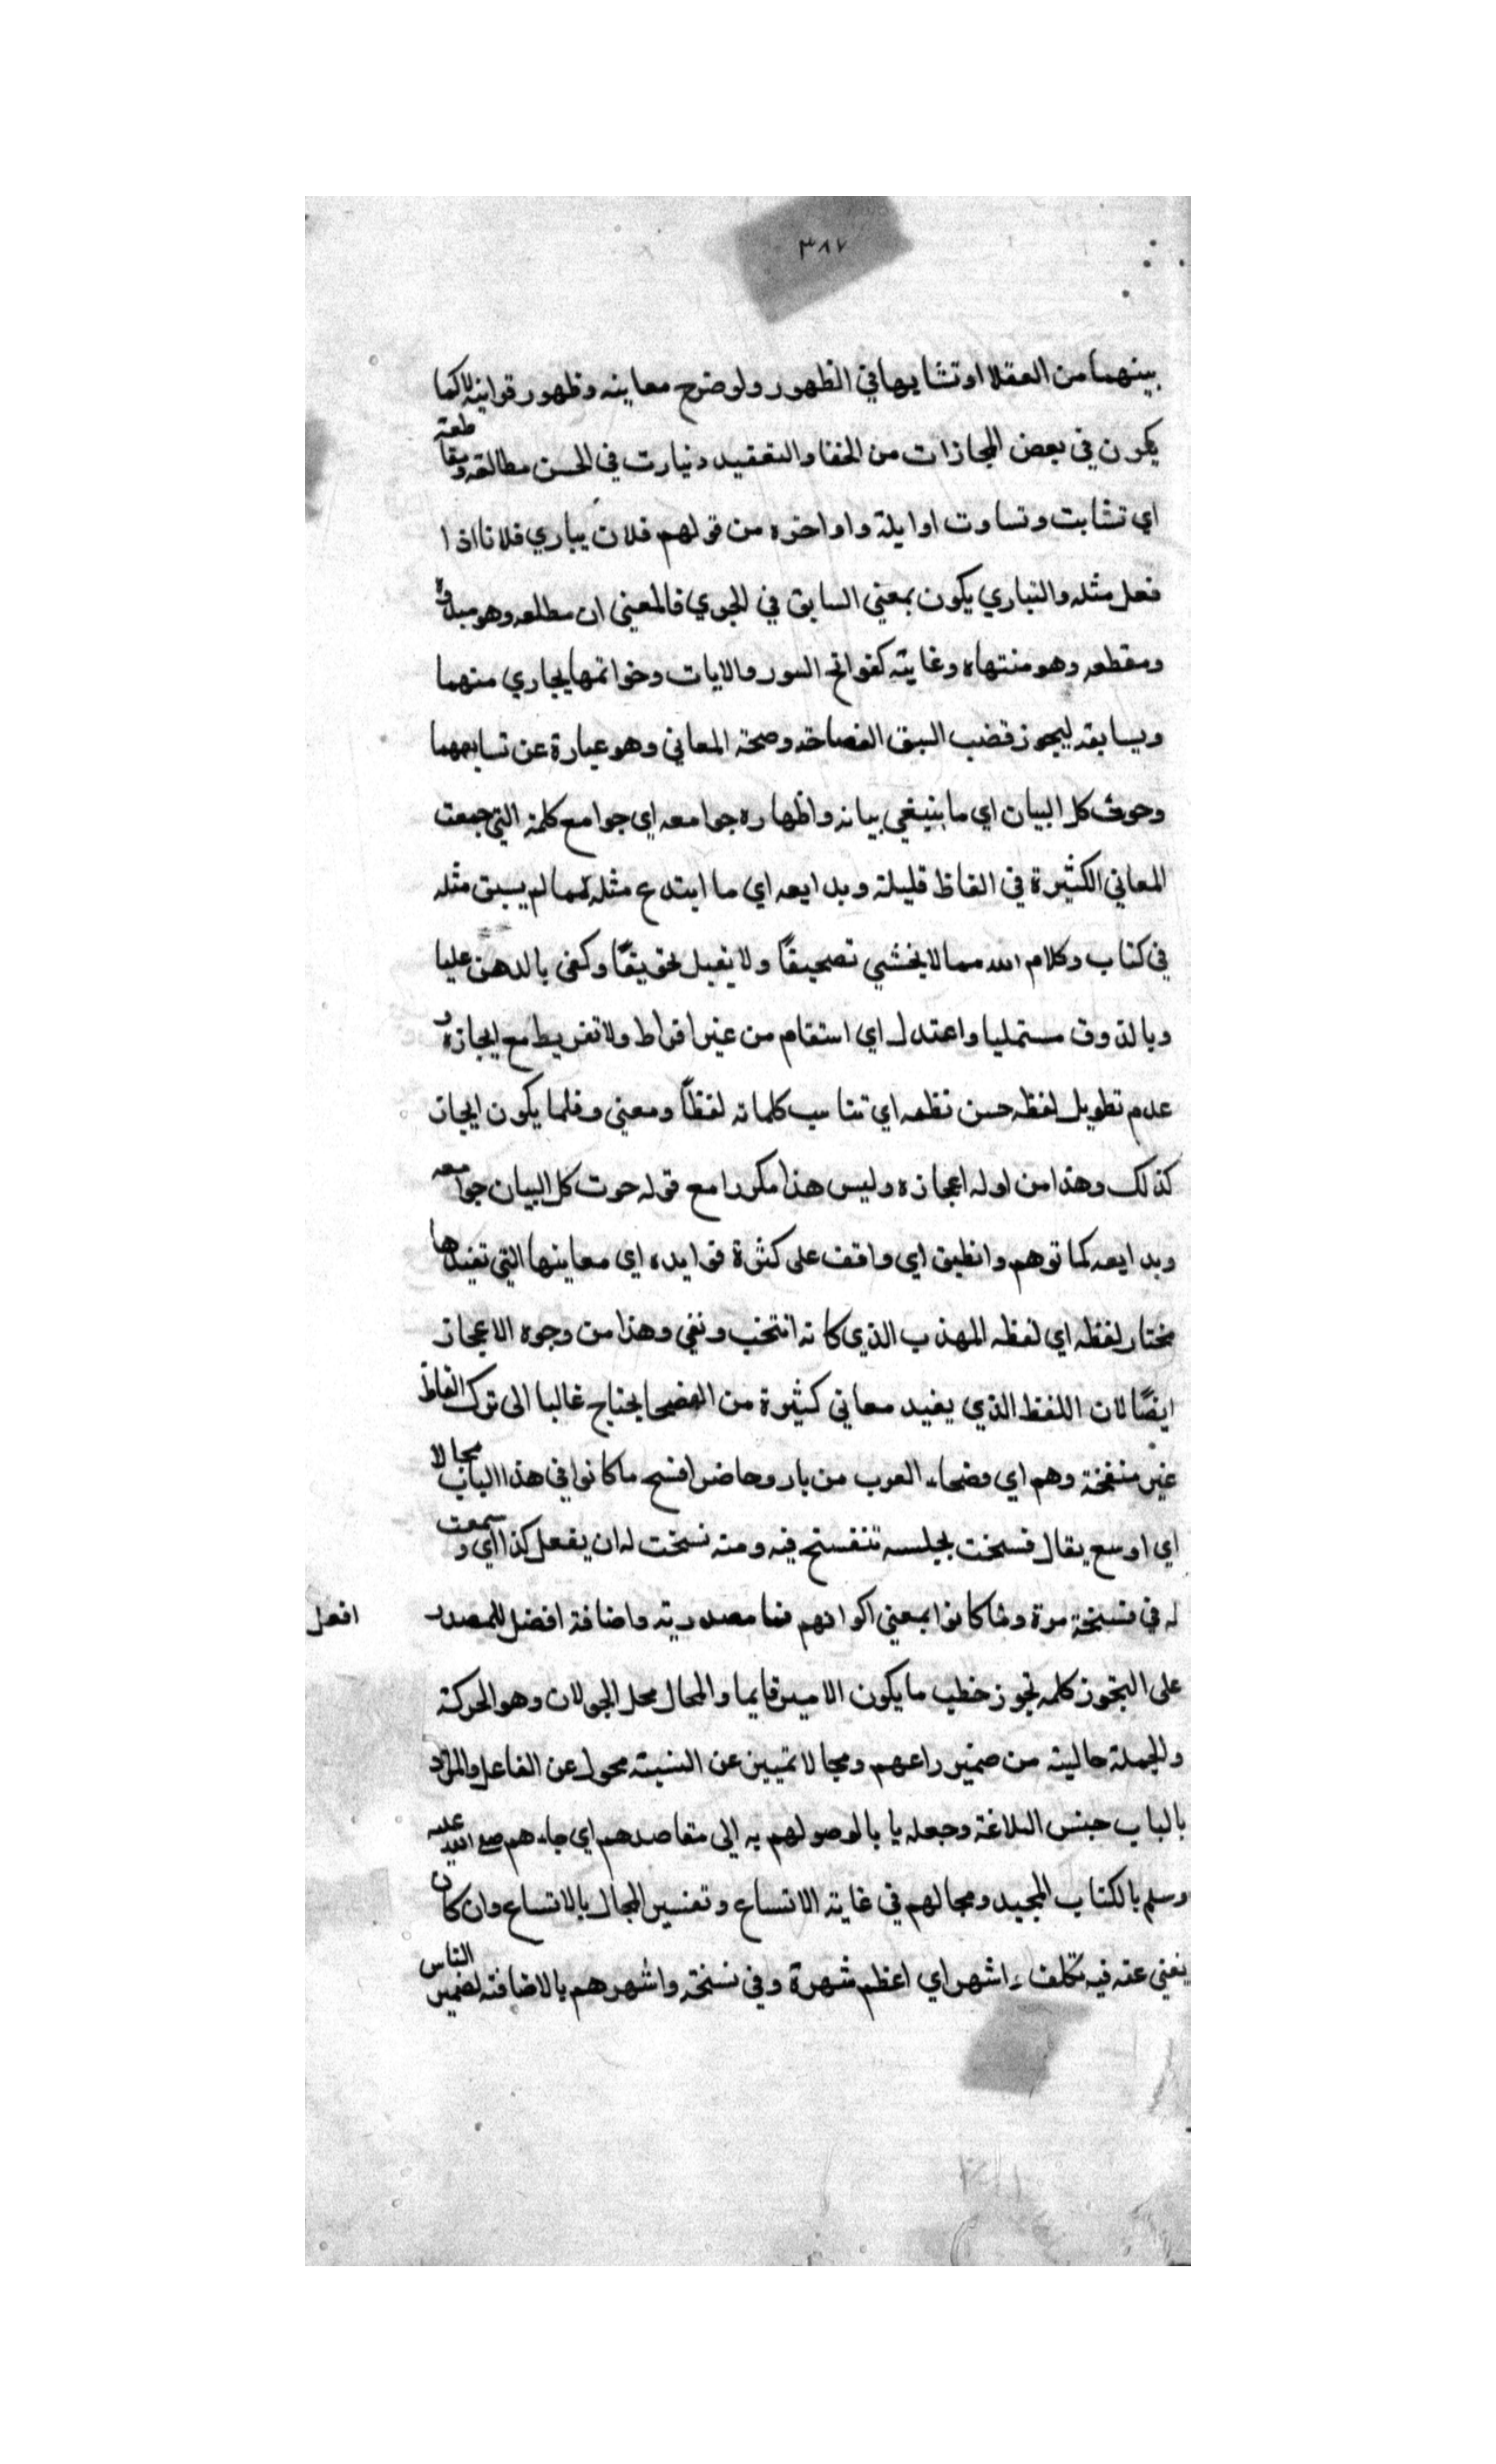 ٣٨٧
بينهما من العقلا او تشابها في الظهور ولوضوح معاينه وظهور قوانينه لا كما
يكون في بعض المجازات من الخفا والتعقيد وتبارت في الحسن مطالعه ومقاطعه
اي تشابت وتساوت اوايله واواخره من قولهم فلان يباري فلانا اذا
فعل مثله والتباري يكون بمعني السابق في الجري فالمعني ان مطلعه وهو مبداوه
ومقطعه وهو منتهاه وغايته كفواتح السور والايات وخواتمها يجاري منهما
ويسابقه ليجوز قضب السبق الفصاحة وصحة المعاني وهو عبارة عن تسابههما
وحوت كل البيان اي ما ينبغي بيانه واظهاره جوامعه اي جوامع كلمه التي جمعت
المعاني الكثيرة في الفاظ قليلة وبدايعه اي ما ابتدع مثله مما لم يسبق مثله
في كتاب وكلام الله مما لا يخشي تصحيفًا ولا يقبل تحويفًا وكفي بالدهن عليا
وبالذوق مستمليا واعتدل اي استقام من غير افراط ولا تفريط مع ايجازه و
عدم تطويل لفظه حسن نظمه اي تناسب كلماته لفظًا ومعني وقلما يكون ايجاز
كذلك وهذا من اوله اعجازه وليس هذا مكررا مع قوله حوت كل البيان جوامعه
وبدايعه كما توهم وانطبق اي وافق على كثرة فوايده اي معاينها التي تفيدها
مختار لفظه اي لفظه المهذب الذي كانه انتخب ونقي وهذا من وجوه الاعجاز
ايضًا لان اللفظ الذي يفيد معاني كثيرة من الفصحا يحتاج غالبا الى ترك الفاظ
غير منقحة وهم اي فصحاء العرب من باد وحاضر افسح ما كانوا في هذا الباب مجالا
اي اوسع يقال فسحت بمجلسه تنفسح فيه ومنه نسخت له ان يفعل كذا اي وسمعت
له في فسخة مرة وما كانوا بمعني اكوانهم فما مصدرية واضافة افضل للمصدر
افعل
على التجوز كلمه تجوز خطب ما يكون الامير قايما والمجال محل الجولان وهو الحركة
والجملة حالية من ضمير راعهم ومجالا تمييز عن النسبة محول عن الفاعل والمراد
بالباب جنس البلاغة وجعله بابا لوصولهم به إلى مقاصدهم اي جاءهم صلى الله عليه
وسلم بالكتاب المجيد ومجالهم في غاية الاتساع وتفسير المجال بالاتساع وان كان
يغني عنه فيه تكلف واشهر اي اعظم شهرة وفي نسخة واشهرهم بالاضافة لضمير الناس